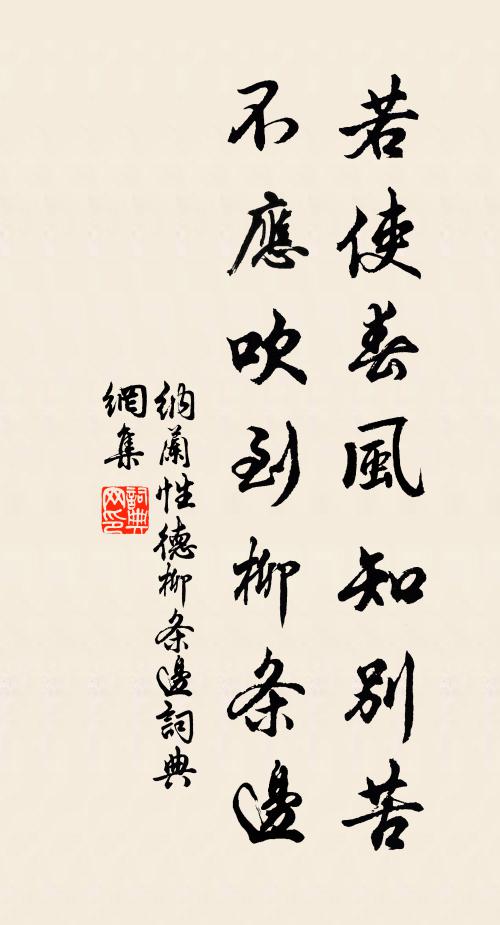 若使春風知別苦
不應吹到柳条邊
納蘭性德柳条邊詞典
網集
詞典网印